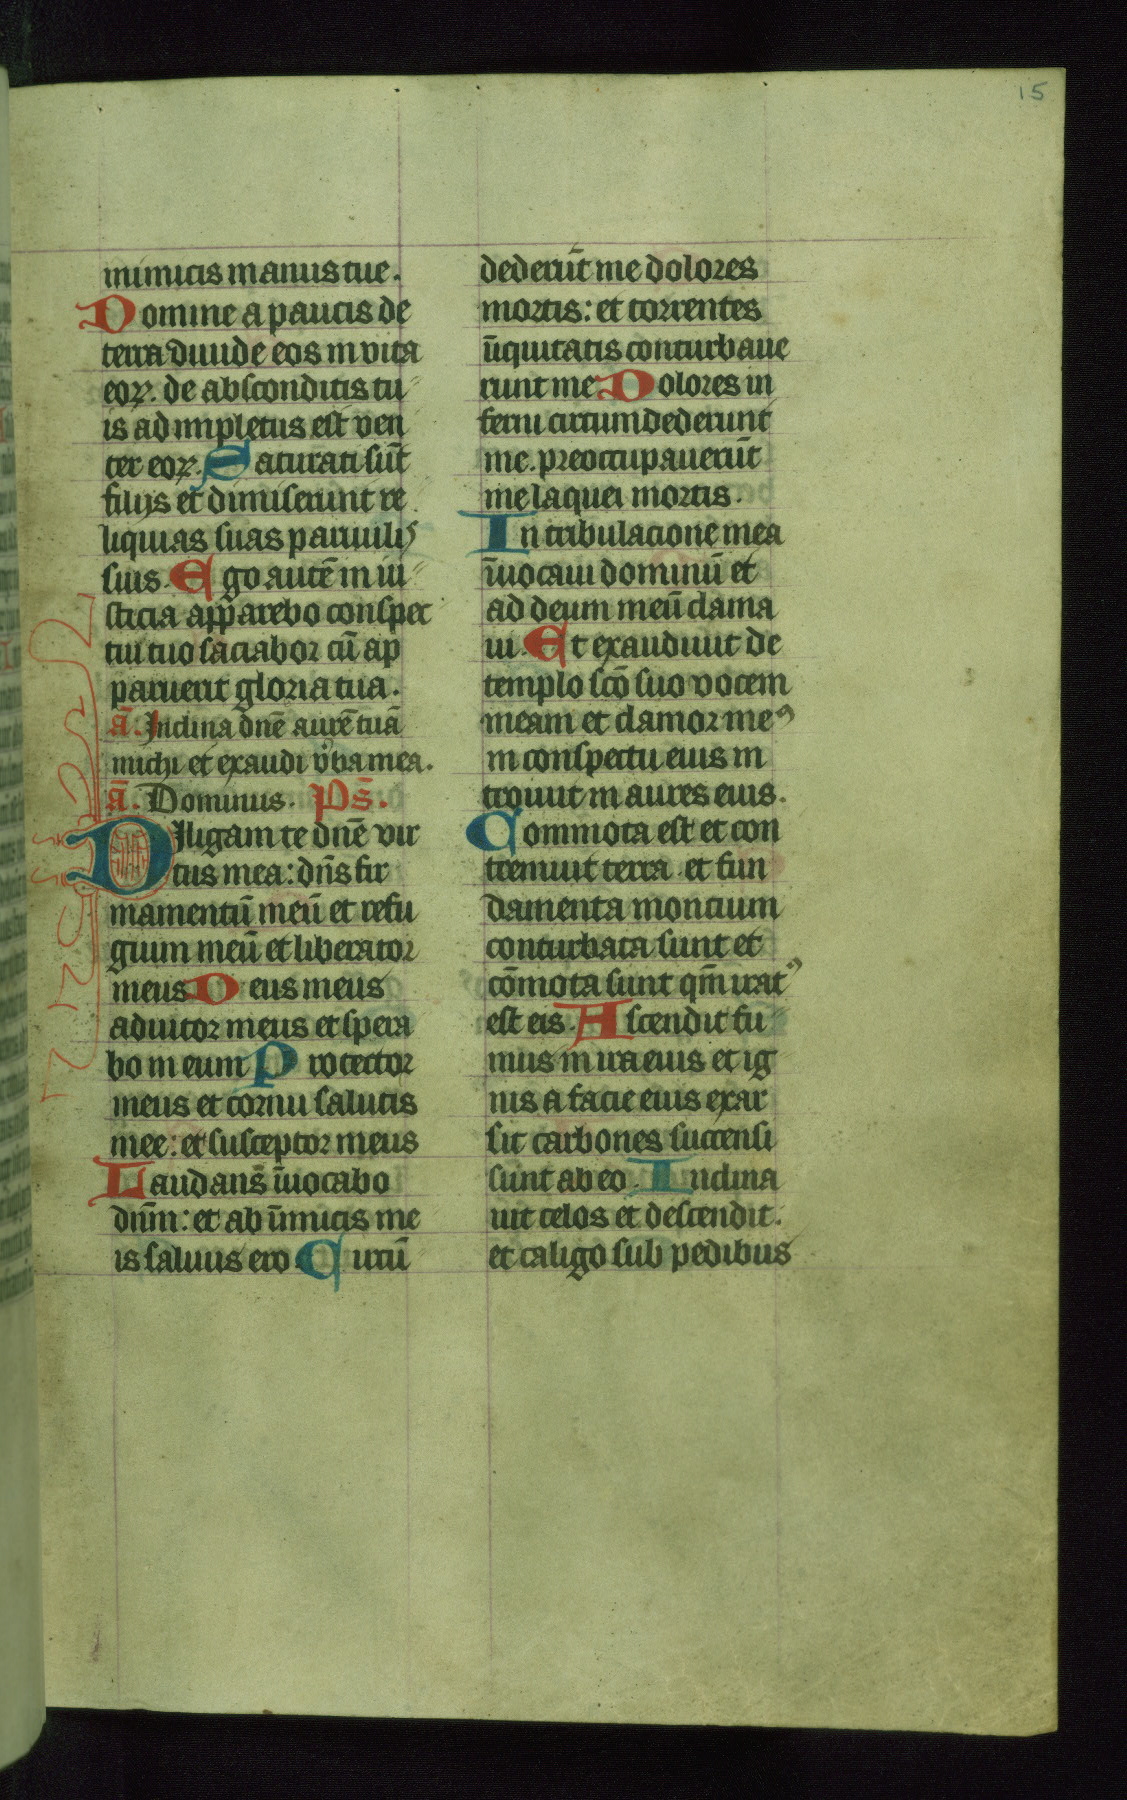 15
inimicis manus tue.
Domine a paucis de
terra divide eos in vita
eoꝝ. de absconditis tu
is adimpletus est ven
ter eoꝝ. Saturati sūt
filiis et dimiserunt re
liquias suas parvulis
suis. Ego autē in iu
sticia apparebo conspec
tui tuo saciabor cū ap
paruerit gloria tua.
ā. Inclina dnē aurē tuā
michi et exaudi v̾ba mea.
ā. Dominus. Ps̄.
Diligam te dnē vir
tus mea: dn̄s fir
mamentū meū et refu
gium meū et liberator
meus Deus meus
adiutor meus et spera
bo in eum Protector
meus et cornu salutis
mee: et susceptor meus
Laudans īvocabo
dnm̄: et ab īnimicis me
is salvus ero Circū
dederūt me dolores
mortis: et torrentes
īiquitatis conturbave
runt me Dolores in
ferni circumdederunt
me. preoccupaverūt
me laquei mortis.
In tribulacione mea
īvocavi dominū et
ad deum meū clama
vi. Et exaudivit de
templo scō suo vocem
meam et clamor meꝰ
in conspectu eius in
troivit in aures eius.
Commota est et con
tremuit terra et fun
damenta moncium
conturbata sunt et
cōmota sunt qm̄ iratꝰ
est eis. Ascendit fu
mus in ira eius et ig
nis a facie eius exar
sit carbones succensi
sunt ab eo. Inclina
vit celos et descendit.
et caligo sub pedibus